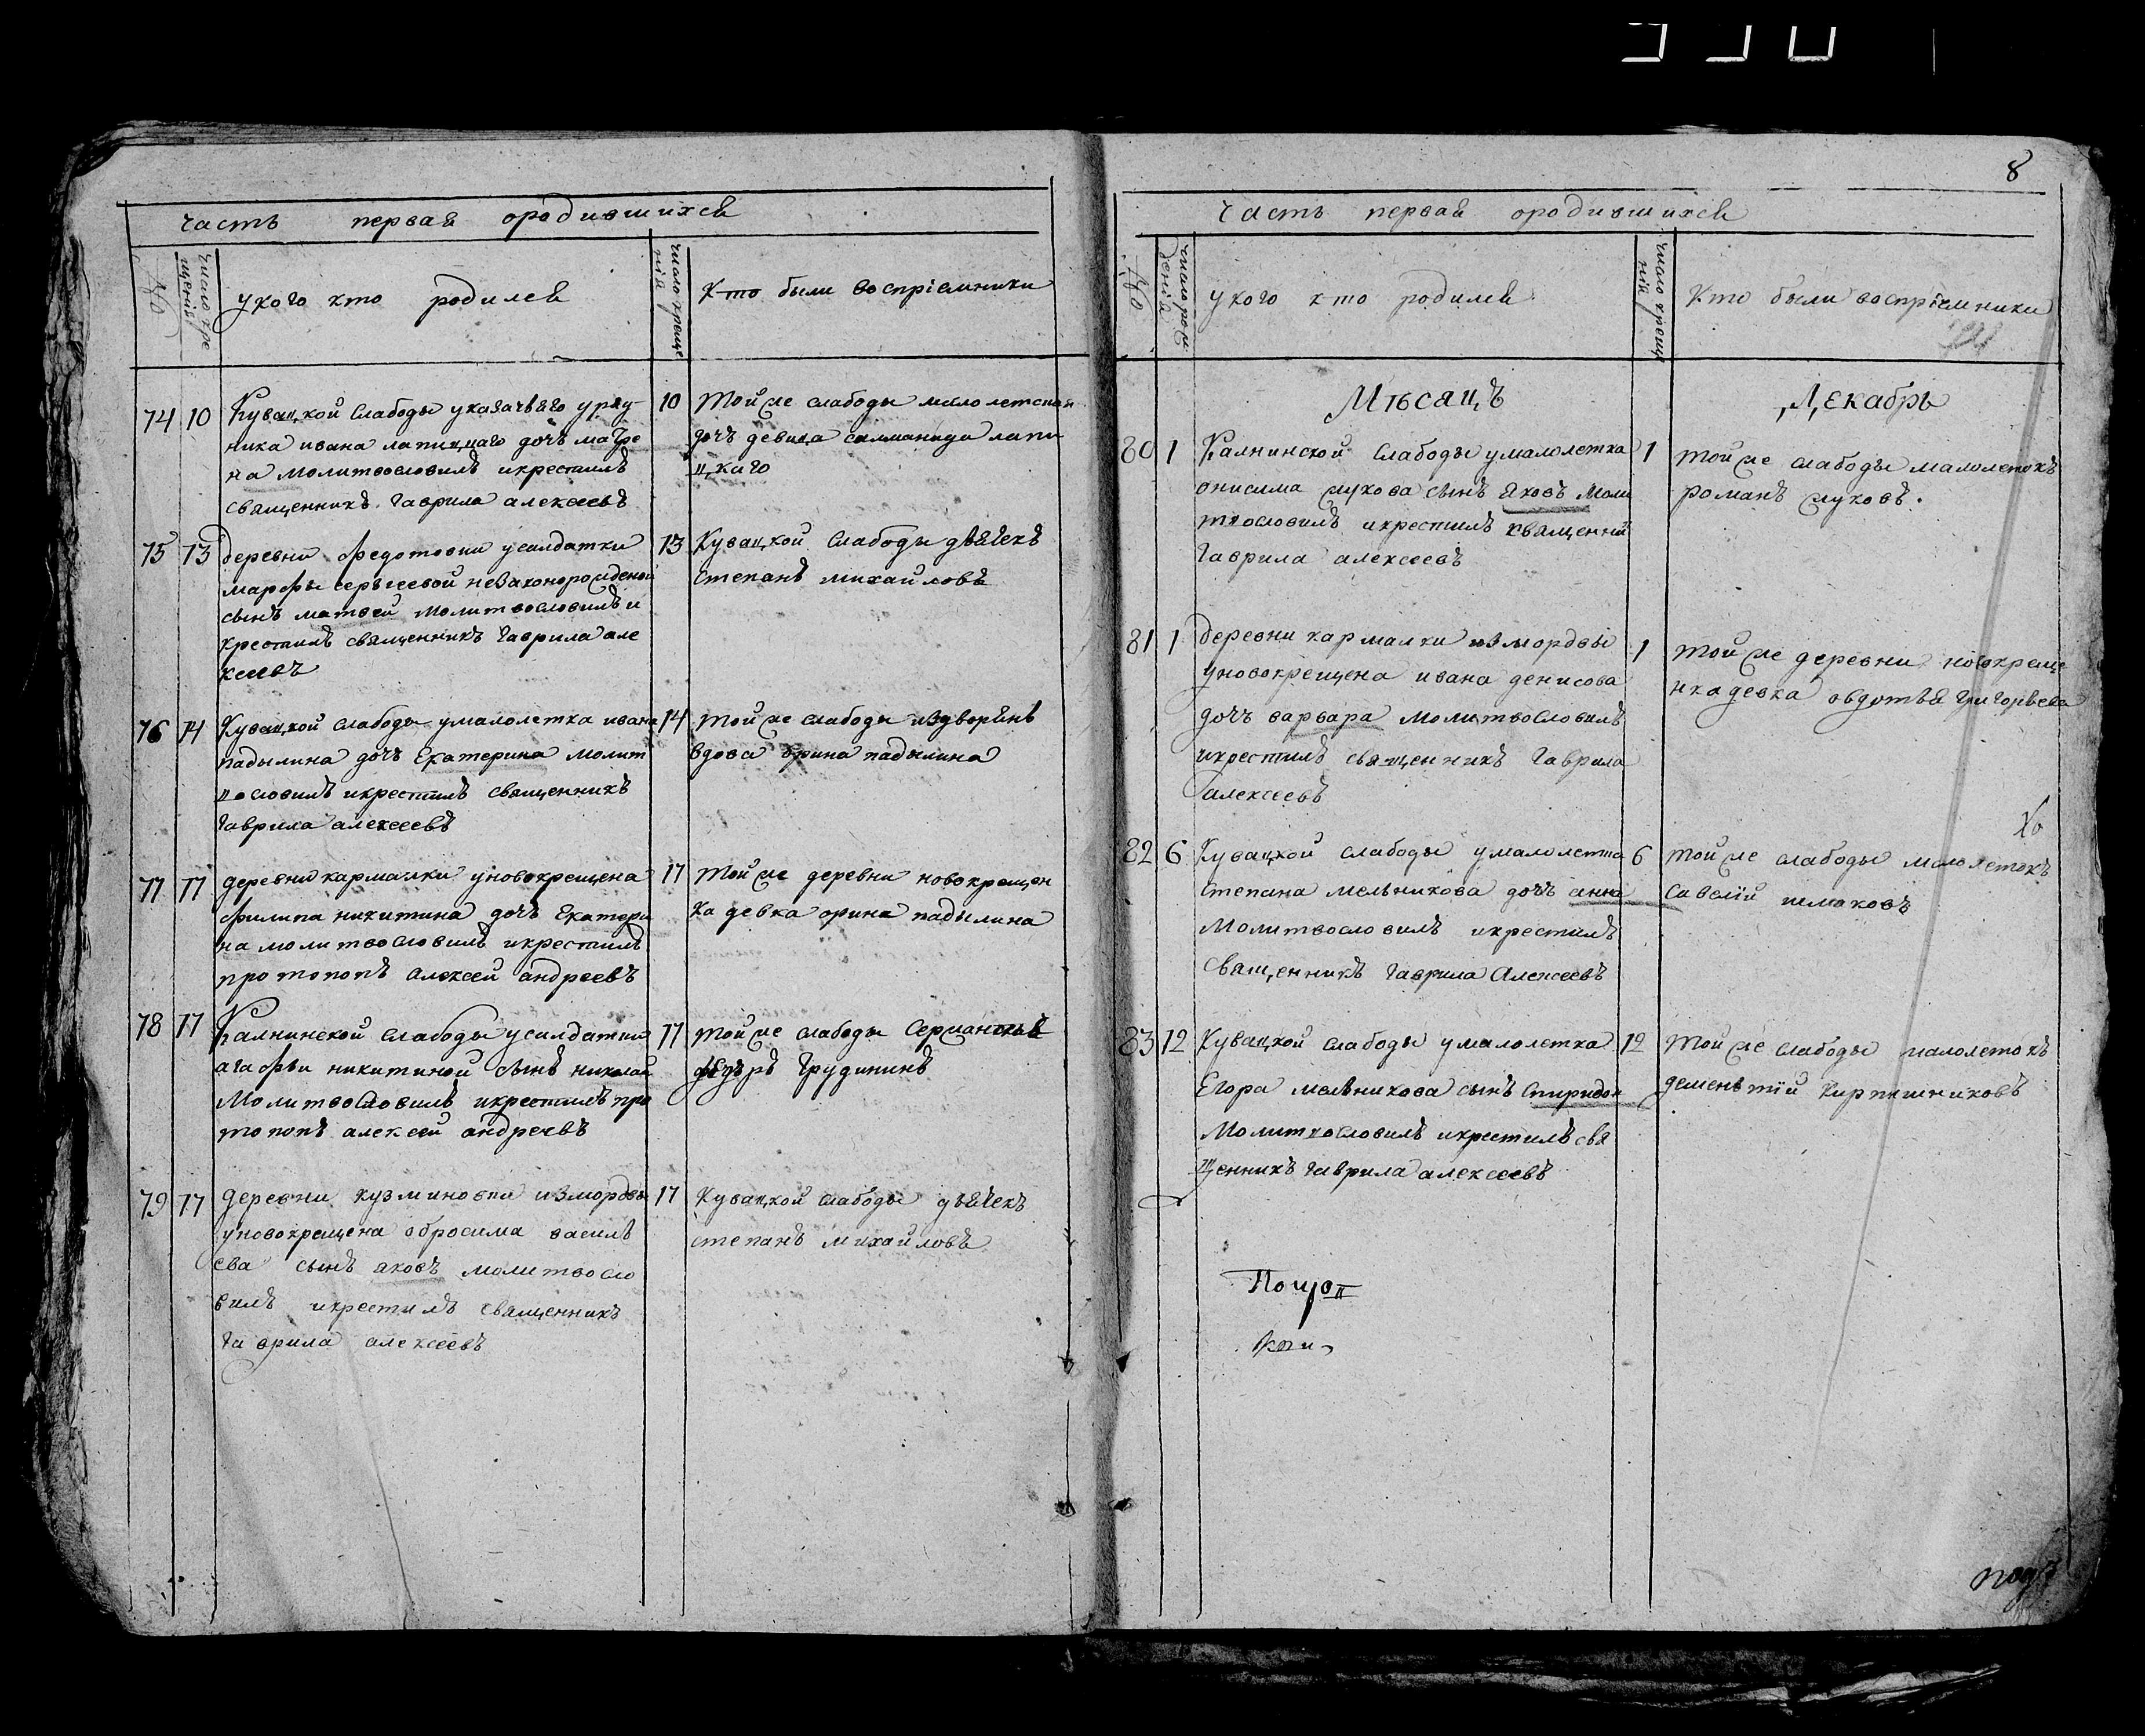 8
часть первая ородившихся
№
число кре
щенія
укого кто родился
число креще
нія
Кто были воспріемники
74 10 Кувацкой слабоды указачьяго уряд
ника ивана лапицкаго дочь матре
на молитвословилъ икрестилъ
священникъ гаврила алексеевъ
10 Тойже слабоды малолетская
дочь девица саламанида лапи
цкаго
75 13 деревни федотовки усалдатки
марфы сергеевой незаконорожденой
сынъ матвей молитвословилъ и
крестилъ священникъ гаврила але
ксеевъ
13 Кувацкой слабоды дьячекъ
степанъ михайловъ
76 14 Кувацкой слабоды умалолетка ивана
падылина дочь Екатерина молит
вословилъ икрестилъ священникъ
гаврила алексеевъ
14 тойже слабоды издворянъ
вдова орина падылина
77 17 деревни кармалки уновокрещена
филипа никитина дочь Екатери
на молитвословилъ икрестилъ
протопопъ алексей андреевъ
17 тойже деревни новокрещен
ка девка орина падылина
78 17 Калнинской слабоды усалдатки
агафьи никитиной сынъ николай
молитвословилъ икрестилъ про
топопъ алексей андреевъ
17 тойже слабоды сержантъ
федоръ грудининъ
79 17 деревни кузминовки измордвы
уновокрещена обросима василь
ева сынъ яковъ молитвосло
вилъ икрестилъ священникъ
гаврила алексеевъ
17 Кувацкой слабоды дьячекъ
степанъ михайловъ
часть первая ородившихся
№
число рож
денія
укого кто родился
число креще
нія
Кто были воспріемники
Мѣсяцъ Декабрь
80 1 Калнинской слабоды умалолетка
онисима жукова сынъ яковъ моли
твословилъ икрестилъ священни
гаврила алексеевъ
1 тойже слабоды малолетокъ
романъ жуковъ.
81 1 деревни кармалки измордвы
уновокрещена ивана денисова
дочь варвара молитвословилъ
икрестилъ священникъ гаврила
алексеевъ
1 тойже деревни новокреще
нка девка овдотья григорьева
82 6 Кувацкой слабоды умалолетка
степана мельникова дочь анна
молитвословилъ икрестилъ
священникъ гаврила Алексеевъ
6 тойже слабоды малолетокъ
савелій шмаковъ
83 12 Кувацкой слабоды умалолетка
Егора мельникова сынъ спиридон
молитвословилъ икрестилъ свя
щенникъ гаврила алексеевъ
12 тойже слабоды малолетокъ
дементій кирпишниковъ